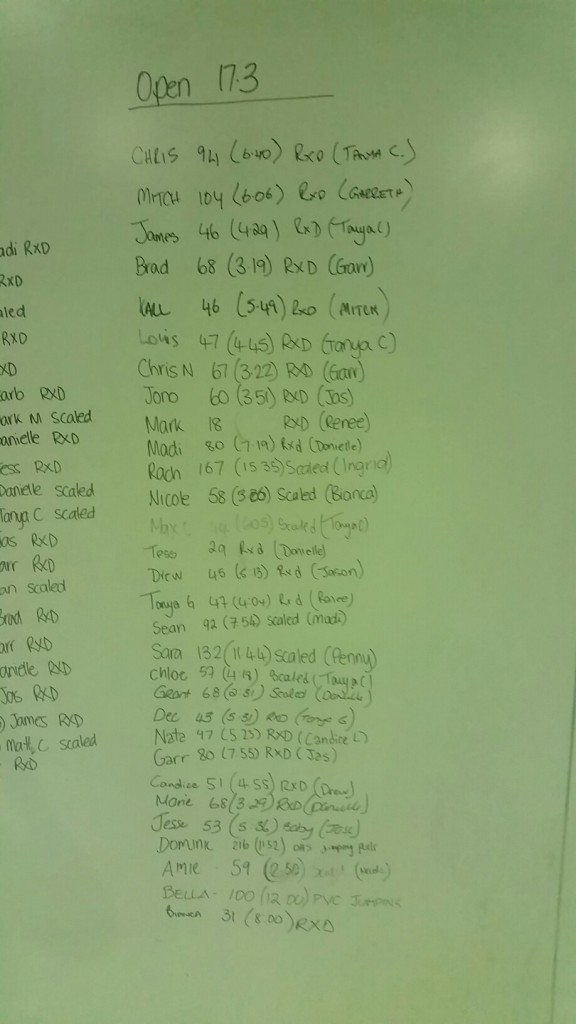 Open 17.3
CHRIS 94 (6.40) RXD (TANYA C.)
MITCH 104 (6.06) RXD (GARRETH)
James 46 (4.29) RXD (Tanya C)
Brad 68 (3.19) RXD (Garr)
46 (5.49) RXD (MITCH)
Louis 47 (4.45) RXD (Tonya C)
Chris N 67 (3.22) RXD (Garr)
Jono 60 (3.51) RXD (Jas)
Mark 18 RXD (Renee)
Madi 80 (7.19) Rxd (Danielle)
Rach 167 (15.35) Scaled (Ingrid)
Nicole 58 Scaled (Bianca)
Max Scaled (Tanya C)
Tess 29 Rxd (Danielle)
Drew 45 Rxd (Jason)
Tonya G 47 (4.04) Rxd (Renee)
Sean 92 (7.54) scaled (Madi)
Sara 132 (11.44) Scaled (Penny)
Chloe 57 (4.18) Scaled (Tanya C)
Grant 68 Scaled
Dec 43 (5.31) RXD (Tonya G)
Nate 47 RXD (Candice L)
Garr 80 (7.55) RXD (Jas)
Candice 51 (4.55) RXD (Drew)
Marie 68 (3.29) RXD (Danielle)
Jesse 53 (5.36) Baby
Dominic 216 (11.52) jumping pulls
Amie - 59
BELLA - 100 (12.00) PVC JUMPING
31 (8.00) RXD
adi RXD
RXD
aled
RXD
XD
arb RXD
ark M scaled
anielle RXD
ess RXD
Danielle scaled
Tonya C scaled
as RXD
arr RXD
an scaled
Brad RXD
arr RXD
anielle RXD
Jas RXD
) James RXD
C scaled
RXD